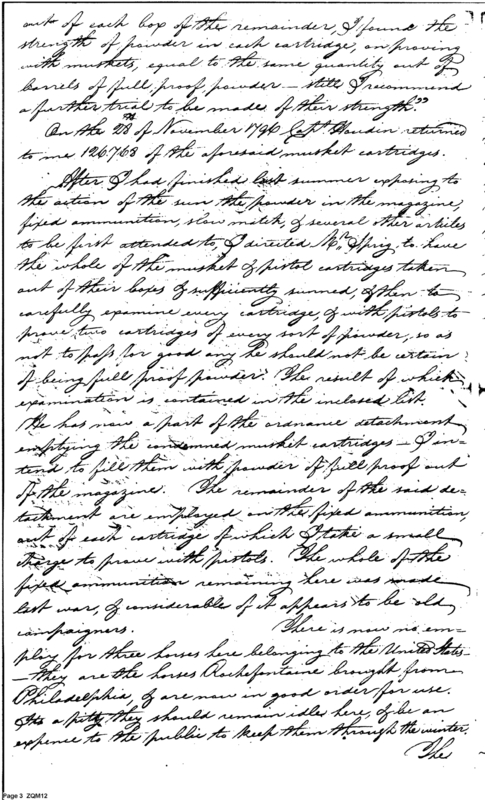 out of each box of the remainder, I found the
strength of powder in each cartridge, on proving
with muskets, equal to the same quantity out of
barrels of full proof powder – still I recommend
a further trial to be made of their strength."
On the 28th of November 1796 Capt. Gaudin returned
to me 126.763 of the aforesaid musket cartridges.
After I had finished last summer exposing to
the action of the sun the powder in the magazine,
fixed ammunition, slow match, & several other articles
to be first attended to, I directed Mr. Sprig to have
the whole of the musket & pistol cartridges taken
out of their boxes & sufficiently sunned, & then to
carefully examine every cartridge, & with pistols to
prove two cartridges of every sort of powder, so as
not to pass for good any he should not be certain
of being full proof powder. The result of which
examination is contained in the inclosed list.
He has now a part of the ordnance detachment
emptying the condemned musket cartridges – I in=
tend to fill them with powder of full proof out
of the magazine. The remainder of the said de=
tachment are employed on the fixed ammunition,
out of each cartridge of which I take a small
charge to prove with pistols. The whole of the
fixed ammunition remaining here was made
last war, & considerable of it appears to be old
campaigners. There is now no em=
ploy for three horses here belonging to the United States
– they are the horses Rochefontaine brought from
Philadelphia, & are now in good order for use.
Its a pitty they should remain idle here, & be an
expence to the public to keep them through the winter.
The
Page 3 ZQM12